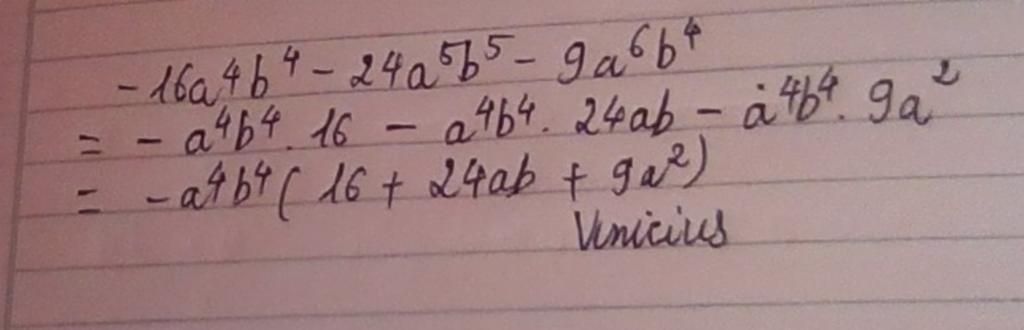 -16a⁴b⁴ - 24a⁵b⁵ - 9a⁶b⁴
= - a⁴b⁴. 16 - a⁴b⁴. 24ab - a⁴b⁴. 9a²
= -a⁴b⁴( 16 + 24ab + 9a²)
Vinicius